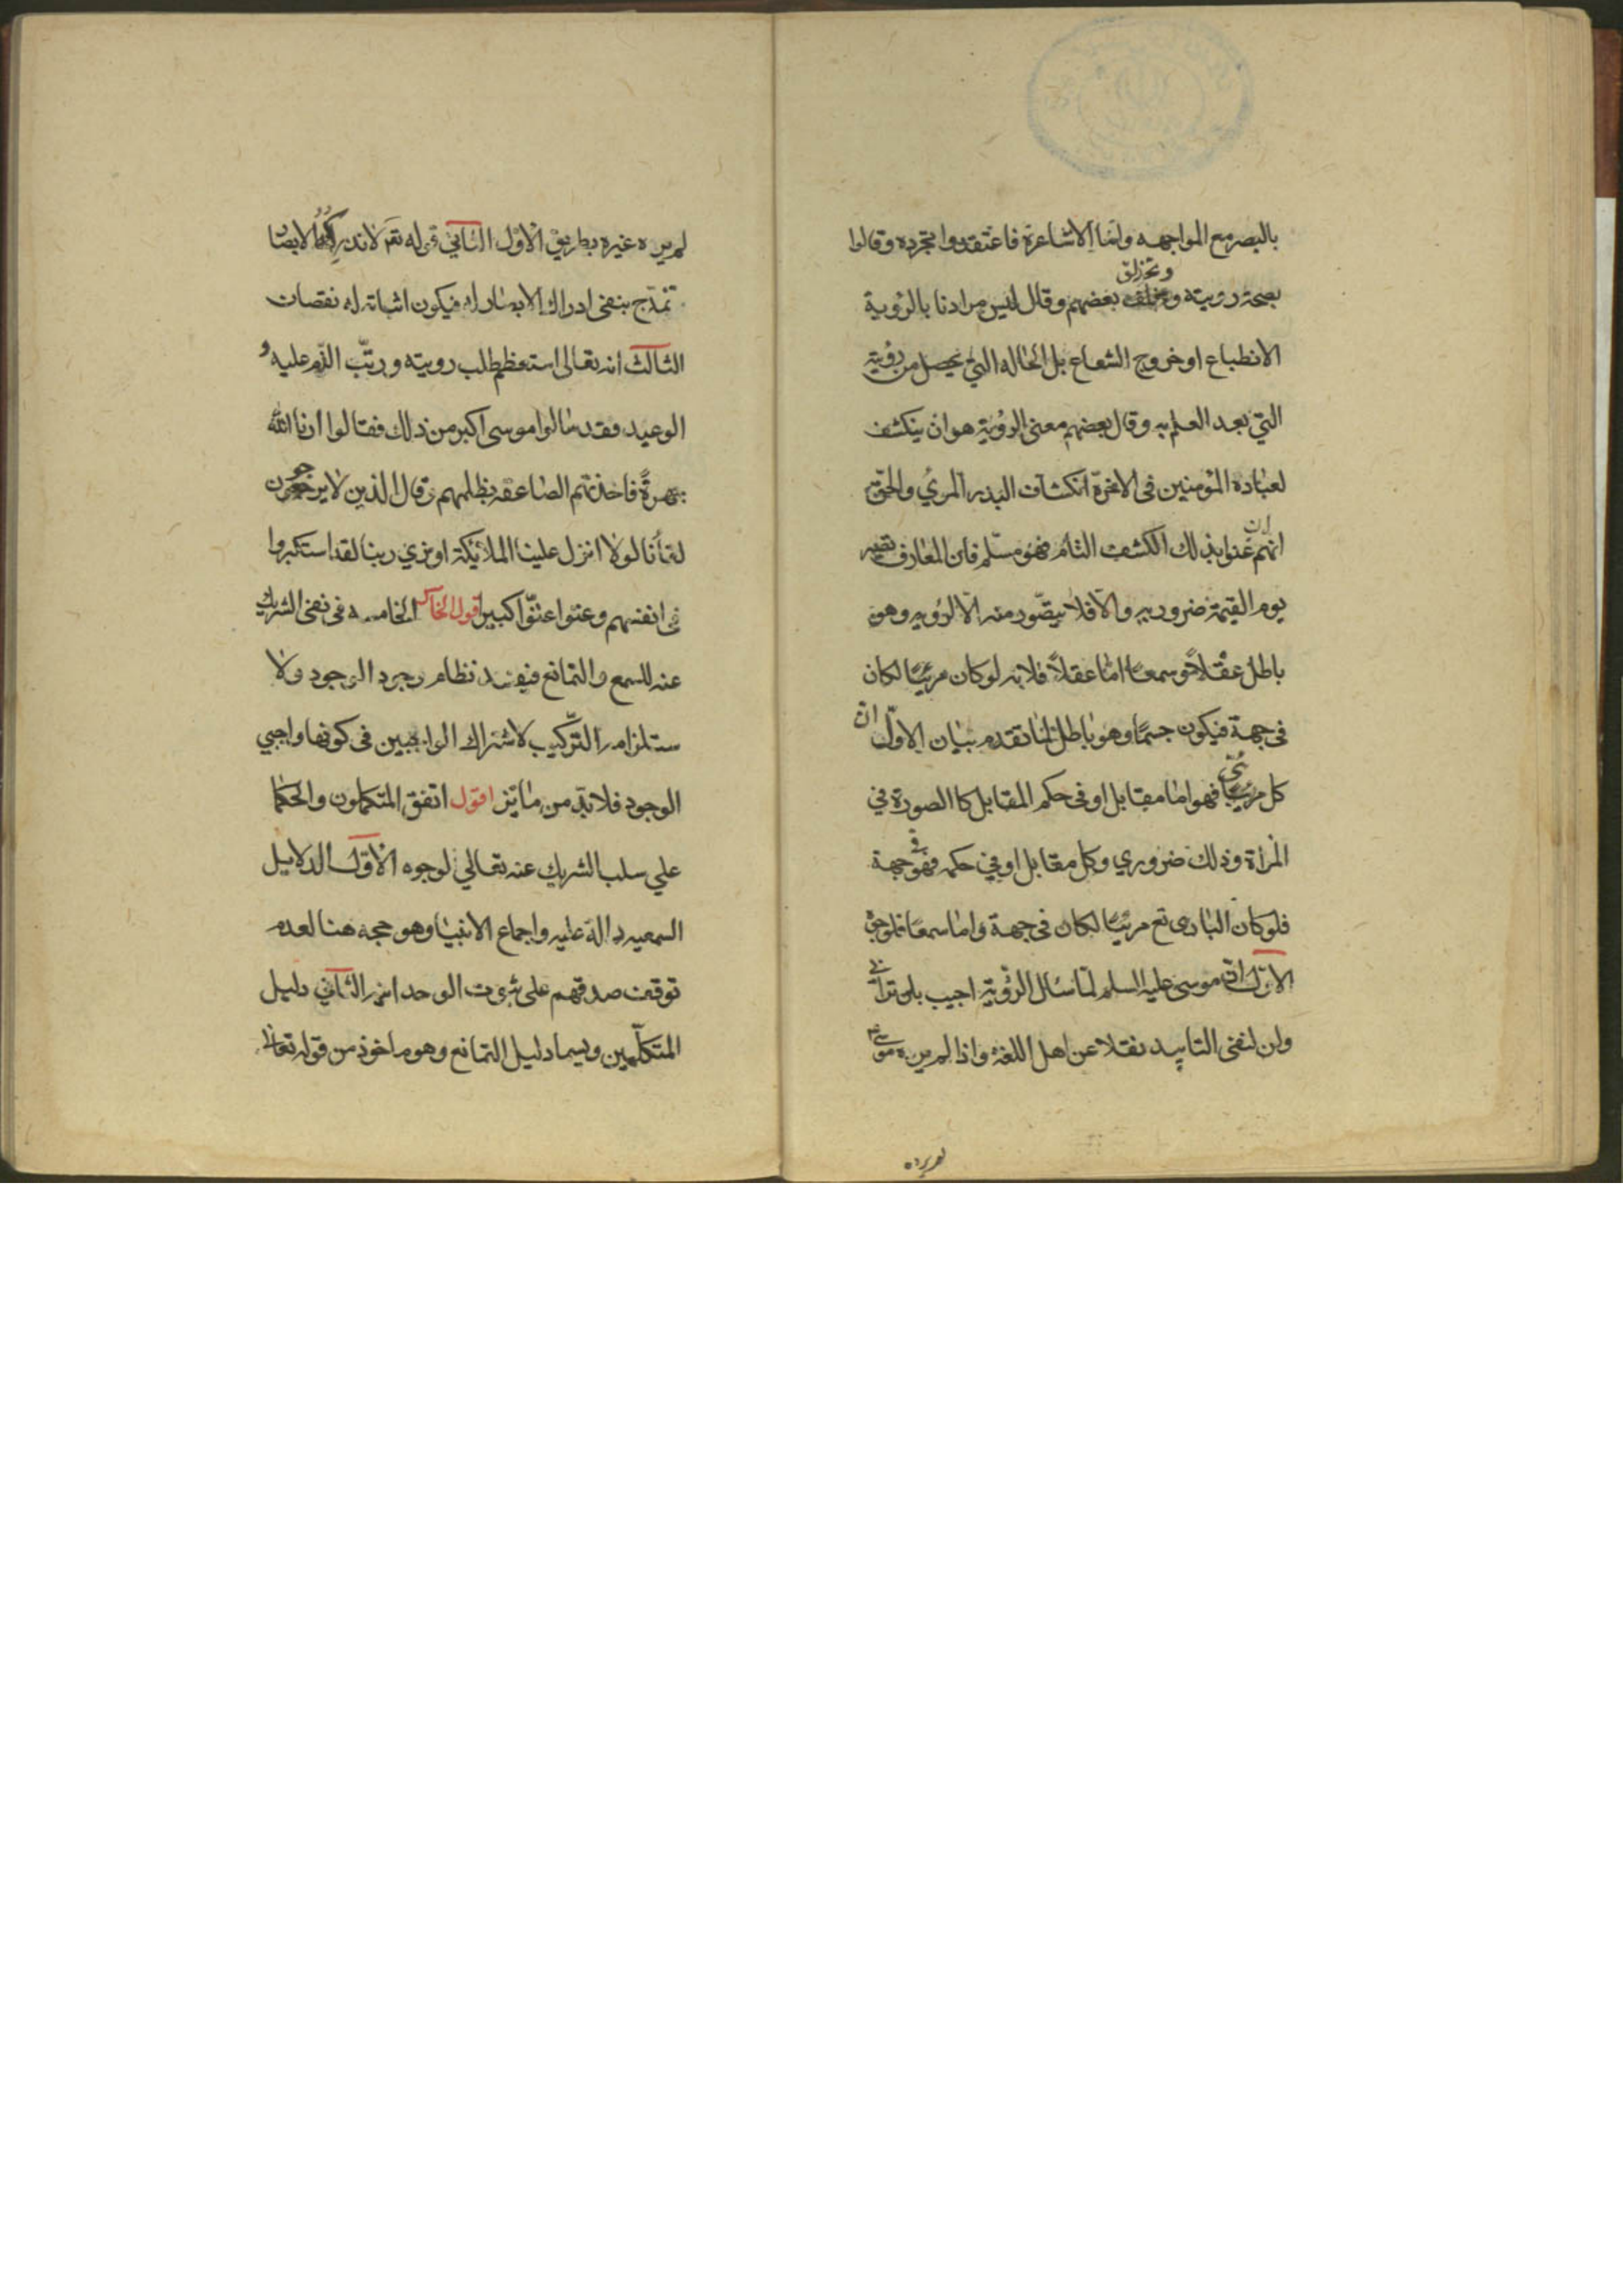 بالبصر مع المواجهه واما الاشاعرة فاعتقدوا تجرده وقالوا
بصحة رويته وتحزلق بعضهم وقال ليس مرادنا بالرؤية
الانطباع او خروج الشعاع بل الحاله التي يحصل من رؤية
التي بعد العلم به وقال بعضهم معنى الرؤية هو ان ينكشف
لعباده المؤمنين فى الاخرة انكشاف البدر المرئ والحق
انهم ان عنوا بذلك الكشف التام فهو مسلم فان المعارف تصير
يوم القيمة ضروريه والا فلا يتصور منه الا الرؤيه وهو
باطل عقلا وسمعا اما عقلا فلانه لو كان مرئيا لكان
فى جهة فيكون جسما وهو باطل لما تقدم بيان الاول ان
كل مرئي فهو اما مقابل او فى حكم المقابل كا الصورة في
المرأة وذلك ضروري وكل مقابل او في حكمه فهو فى جهة
فلو كان البارى تع مرئيا لكان فى جهة واما سمعا فلوجوه
الاول ان موسى عليه السلم لما سئال الرؤية اجيب بلن تراني
ولن لنفى التابيد نقلا عن اهل اللغة واذا لم يره موسى ع
لم يره
لم يره غيره بطريق الاولى الثاني قوله تع لا تدركه الابصار
تمدح بنفى ادراك الابصار له فيكون اثباته له نقصان
الثالث انه تعالى استعظم طلب رويته ورتب الذم عليه و
الوعيد فقد سالوا موسى اكبر من ذلك فقالوا ارنا الله
جهرة فاخذتهم الصاعقه بظلمهم وقال الذين لا يرجون
لقأنا لولا انزل علينا الملائكة او نري ربنا لقد استكبروا
فى انفسهم وعتوا عتوا كبيرا قول الخامسه فى نفى الشريك
عنه للسمع والتمانع فيفسد نظام وجود الوجود ولا
ستلزامه التركيب لاشتراك الواجبين فى كونهما واجبي
الوجود فلا بد من مائز اقول اتفق المتكلمون والحكما
علي سلب الشريك عنه تعالي لوجوه الاول الدلايل
السمعيه دالة عليه واجماع الانبيا وهو حجه هنا لعدم
توقف صدقهم على ثبوت الوحدانيه الثاني دليل
المتكلمين ويسما دليل التمانع وهو ماخوذ من قوله تعالى